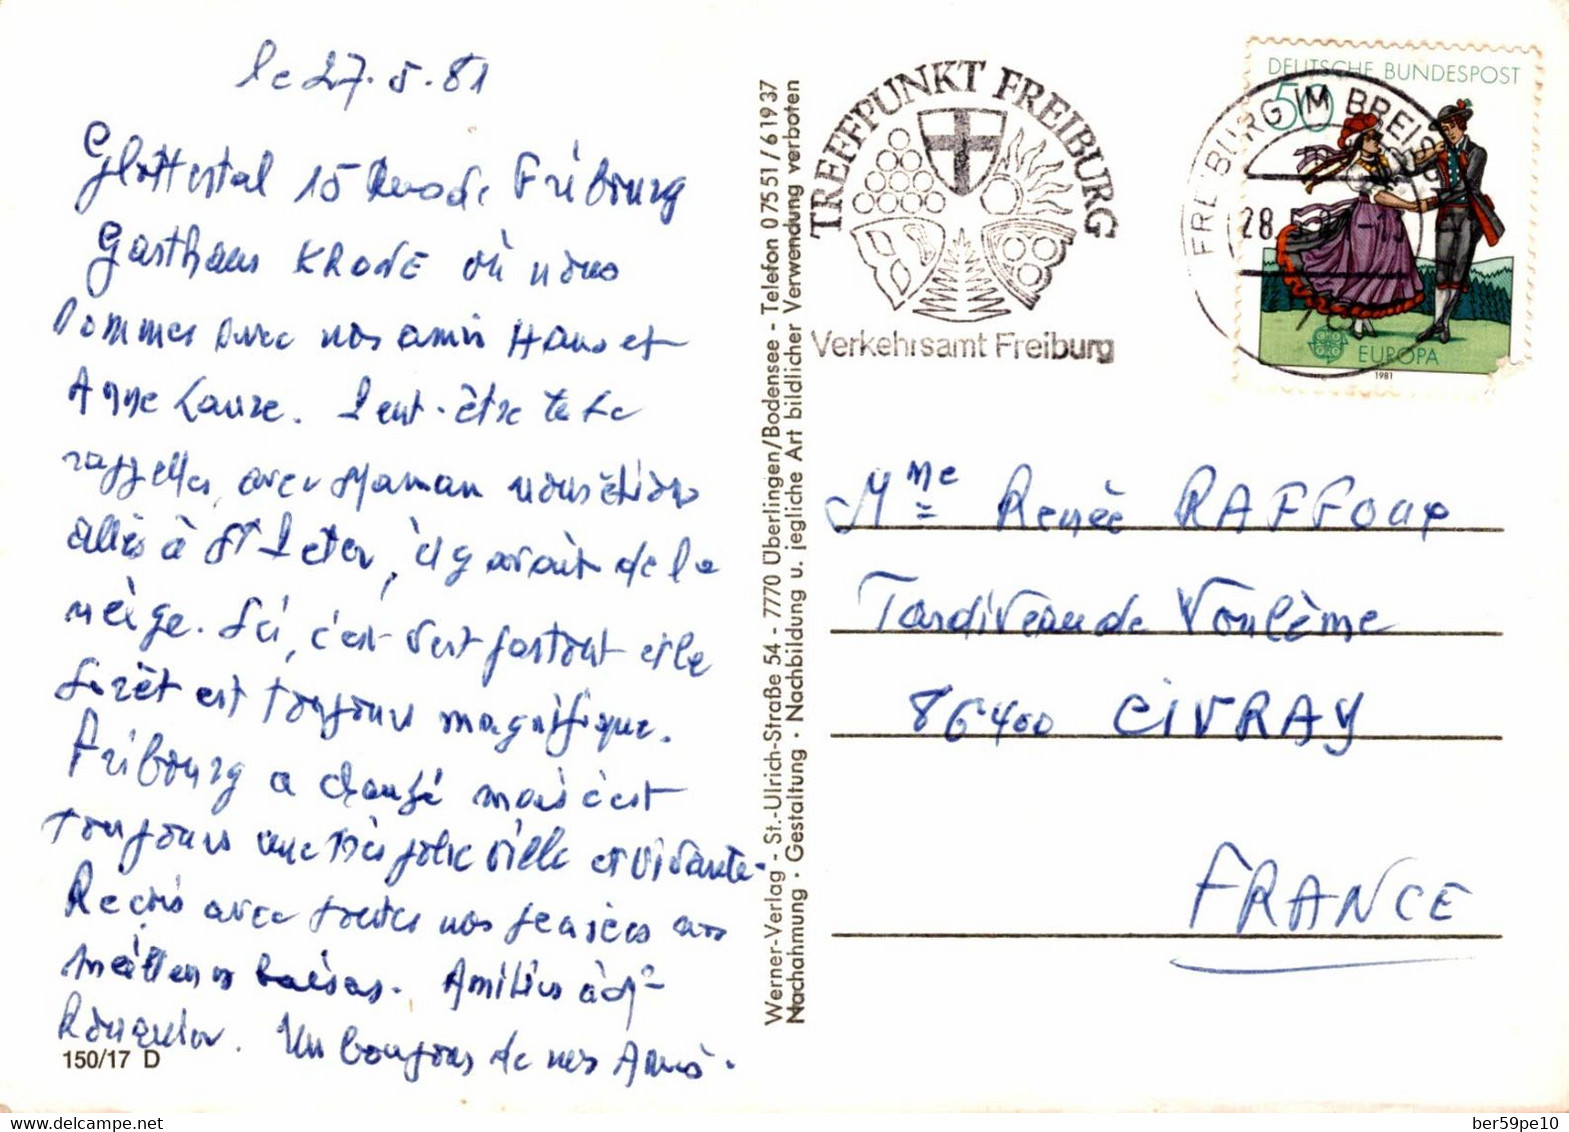 le 27.5.81
Glottertal 15 Km de Fribourg
Gasthaus KRONE où nous
sommes avec nos amis Hans et
Anne Laure. Peut-être te le
rappelles, avec Maman nous étions
allés à St Peter, il y avait de la
neige. Ici, c'est vert partout et la
forêt est toujours magnifique.
Fribourg a changé mais c'est
toujours une très jolie ville et vivante.
Reçois avec toutes nos pensées nos
meilleurs baisers. Amitiés à
Un bonjour de nos Amis.
150/17 D
Werner-Verlag - St.-Ulrich-Straße 54 - 7770 Überlingen/Bodensee - Telefon 07551/61937
Nachahmung · Gestaltung · Nachbildung u. jegliche Art bildlicher Verwendung verboten
TREFFPUNKT FREIBURG
Verkehrsamt Freiburg
FREIBURG IM BREISGAU
28
DEUTSCHE BUNDESPOST
50
EUROPA
1981
Mme Renée RAFFOUX
Tardiveau de Voulème
86400 CIVRAY
FRANCE
ber59pe10